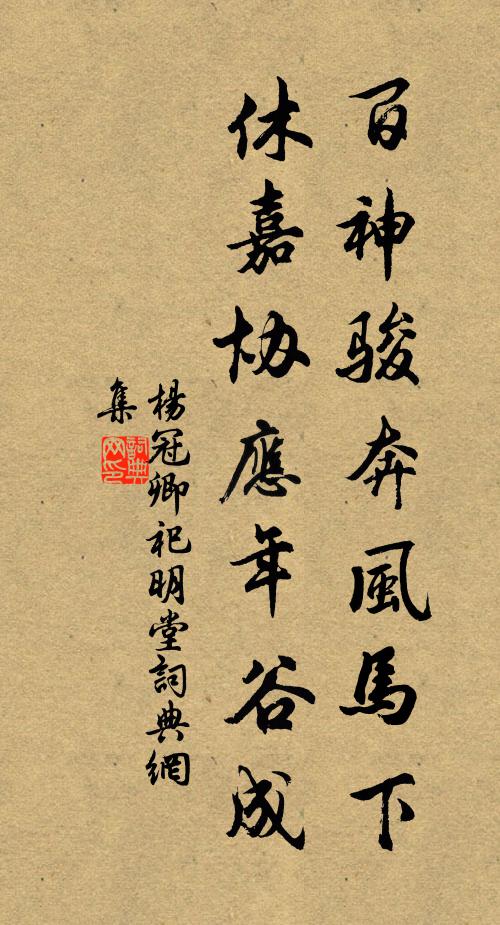 百神骏奔風馬下
休嘉协應年谷成
楊冠卿祀明堂詞典網
集
詞典网印